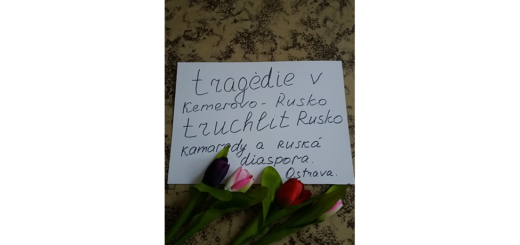 tragédie v
Kemerovo - Rusko
truchlit Rusko
Kamarady a Ruská
diaspora.
Ostrava.